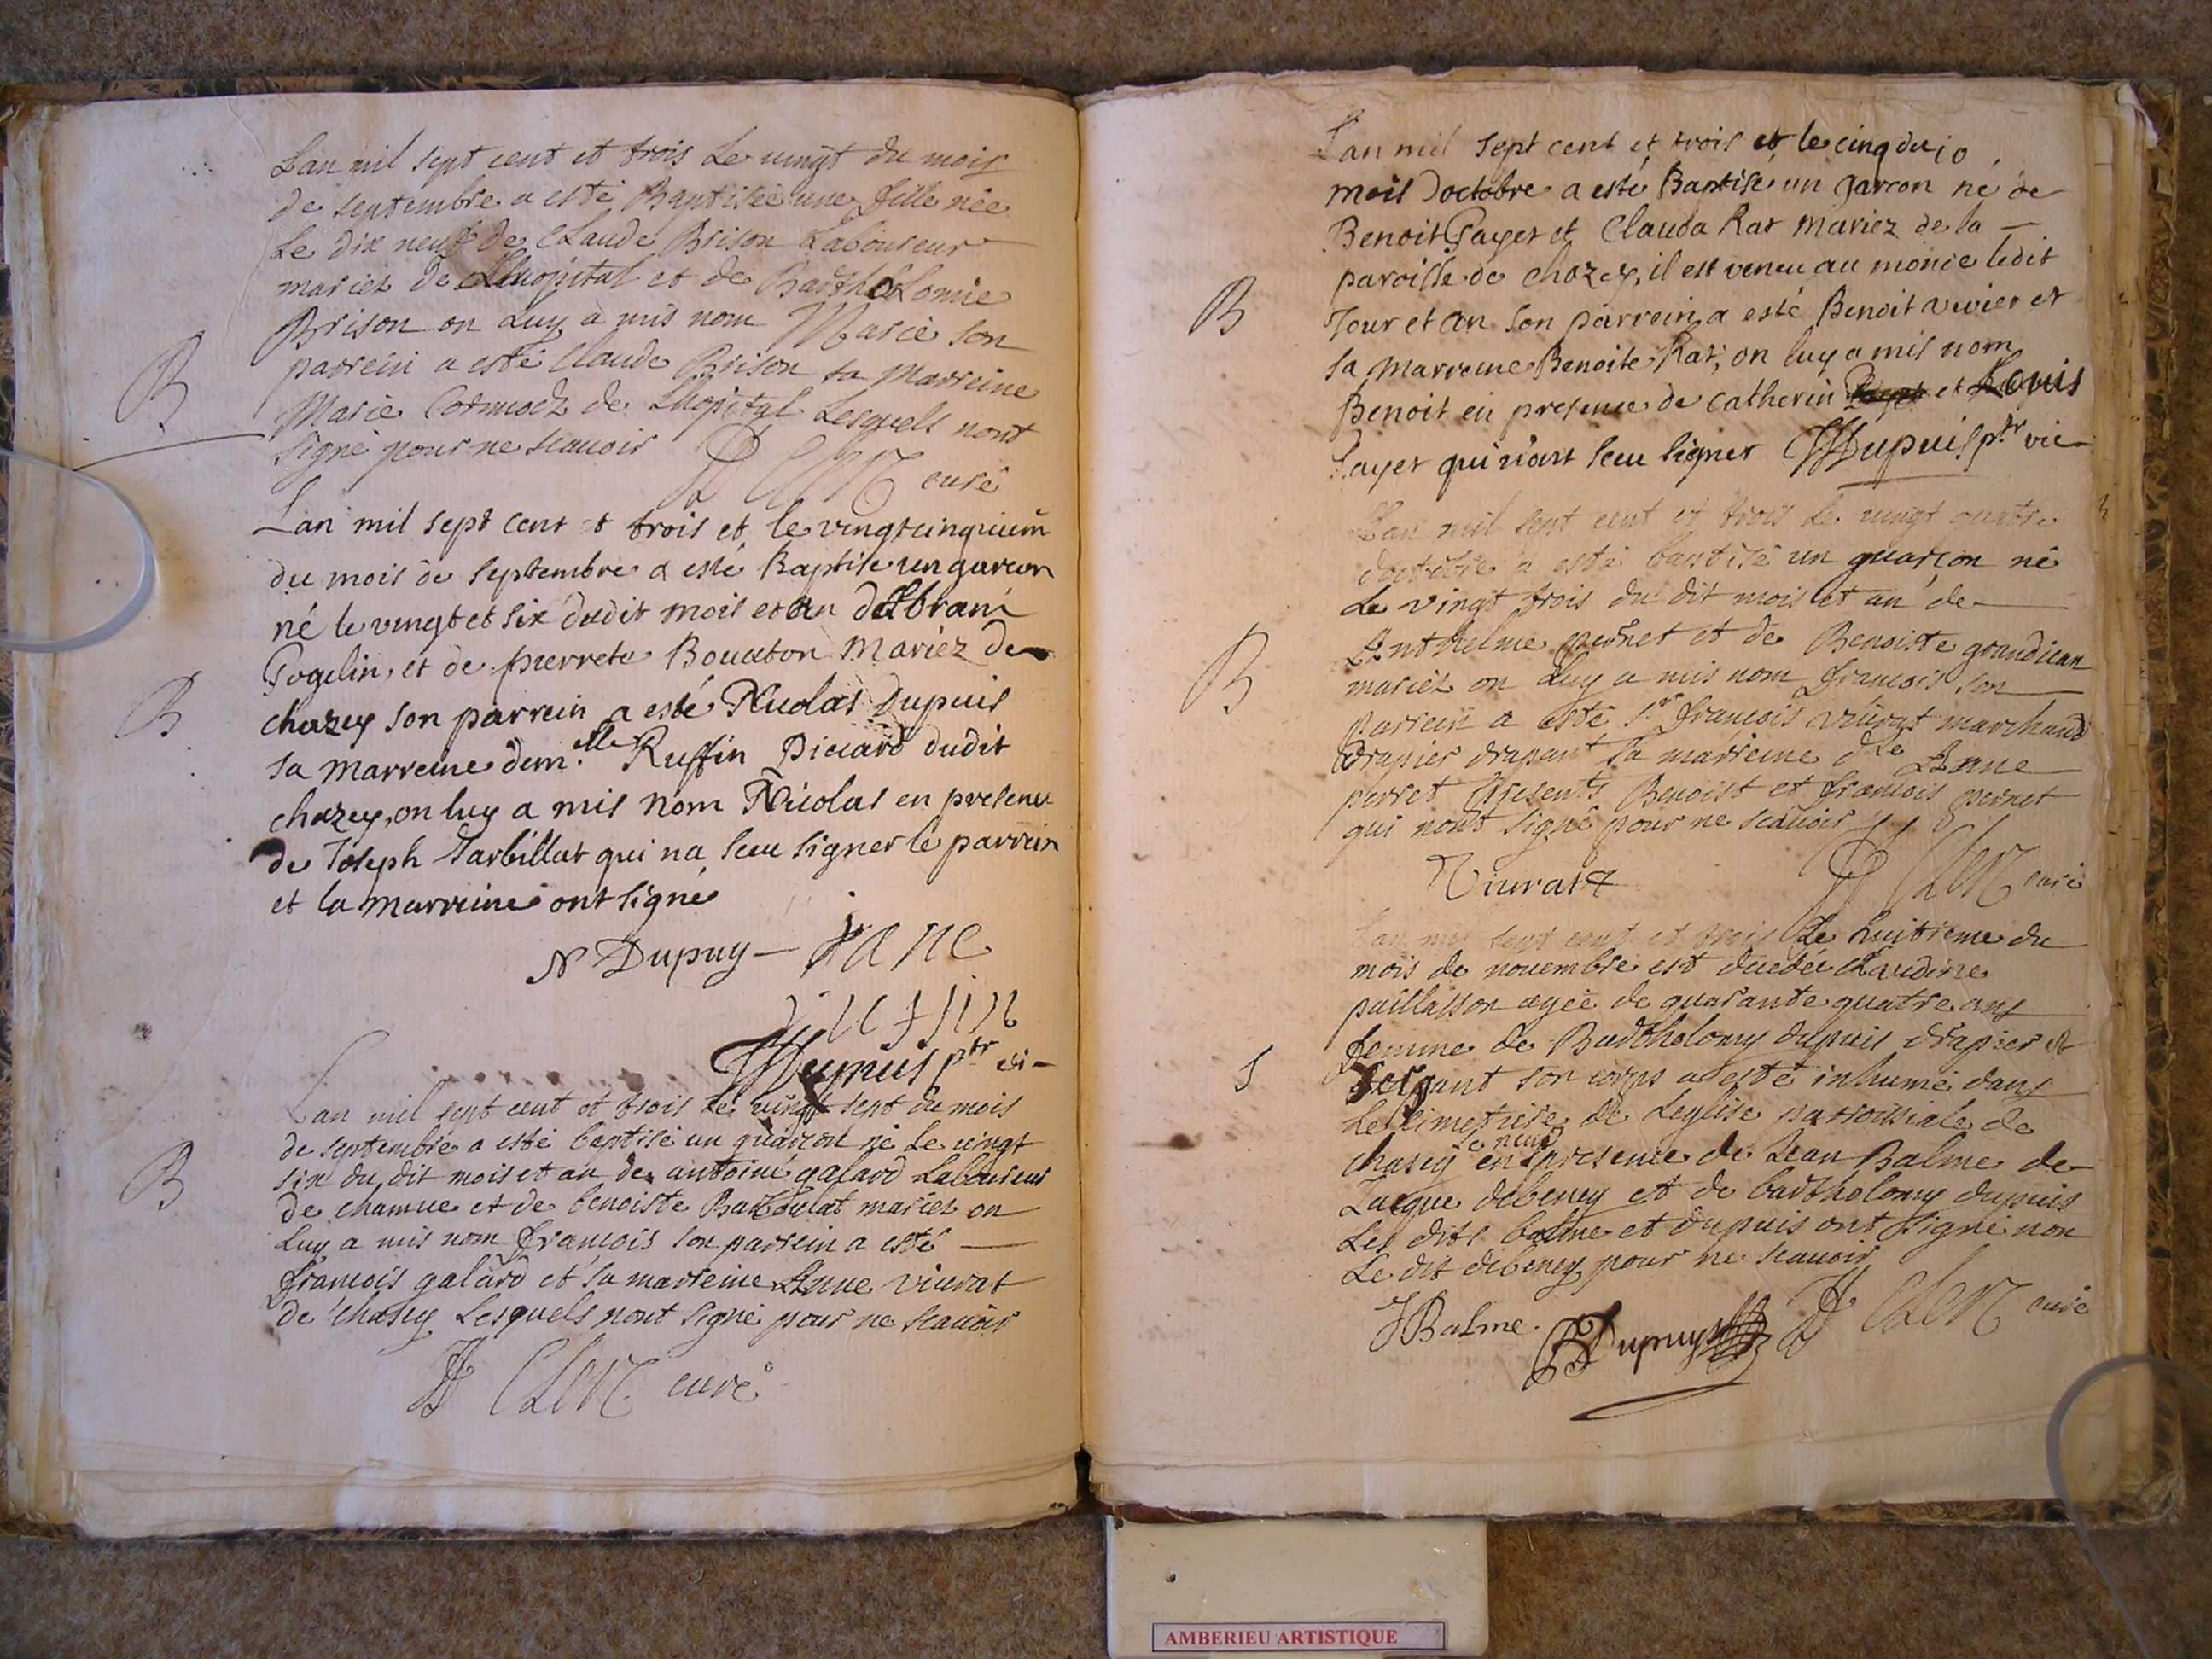 Lan mil sept cent et trois Le uingt du mois
de septembre a esté Baptisée une fille née
Le dix neuf de Claude Brison Laboureur
mariez de Lhopital et de Barthelomie
Brison on Luy a mis nom Marie son
parrein a esté Claude Brison sa Marreine
Marie de Lhopital Lesquels nont
B
signé pour ne scauoir
Clerc curé
Lan mil sept cent et trois et le vingtcinquiem
du mois de septembre a esté Baptise un garcon
né le vingt et six dudit mois et an
Pogelin, et de pierrete Bouuton Mariez de
B
chazey son parrein a esté Nicolas Dupuis
sa marreine dem.elle Ruffin Piccard dudit
chazey, on luy a mis nom Nicolas en presence
de Joseph Tarbillat qui na sceu signer le parrein
et la marreine ont signé
N Dupuy — jane
Dupuis ptr vi—
Lan mil sept cent et trois Le uingt sept du mois
de septembre a esté baptisé un guarçon né Le uingt
B
six du dit mois et an de antoine galard Laboureur
de chamue et de benoiste mariez on
Luy a mis nom francois son parrein a esté —
francois galard et sa marreine Anne viurat
de chasey Lesquels nont signé pour ne scauoir
Clerc curé
Lan mil sept cent et trois et le cinq du 10
mois doctobre a esté Baptisé un garcon né de
Benoit Payet et Clauda Rat Mariez de la —
paroisse de chazey, il est veneu au monde ledit
B
Jour et an son parrein a esté Benoit vivier et
sa Marreine Benoite Rat, on luy a mis nom
Benoit en presence de Catherin et Louis
Payet qui n'ont sceu signer Dupuis ptr vic
Lan mil sept cent et trois Le uingt quatre
doctobre a esté baptisé un guarçon né
Le vingt trois du dit mois et an de —
Anthelme pernet et de Benoiste grandiean
B
mariez on Luy a mis nom francois son
parrein a esté s.r francois viurat marchand
drapier drapant sa marreine dlle Anne
perret presents Benoist et francois pernet
qui nont signé pour ne scauoir
Viurat
Clerc curé
Lan mil sept cent et trois Le huitieme du
mois de nouembre est decedée Claudine
paillasson agée de quarante quatre ans
femme de Bartholomy dupuis drapier et
S
sergant son corps a esté inhumé dans
Le cimetiere de Leglise parroissiale de
Le neuf
chasey en presence de Jean Balme de
Jacque debeney et de bartholomy dupuis
Les dits balme et dupuis ont signé non
Le dit debeney pour ne scauoir
JBalme. BDupuy Clerc curé
AMBERIEU ARTISTIQUE